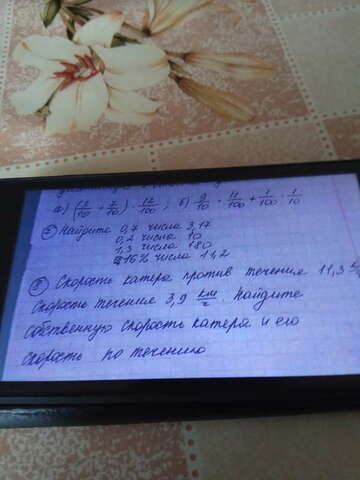 а) (3/10 + 7/10) · 12/100 ; б) 9/10 · 11/100 + 1/100 · 1/10
② Найдите 0,7 числа 3,17
0,2 числа 10
1,3 числа 180
15% числа 11,2
③ Скорость катера против течения 11,3
Скорость течения 3,9 км/ч. Найдите
собственную скорость катера и его
скорость по течению